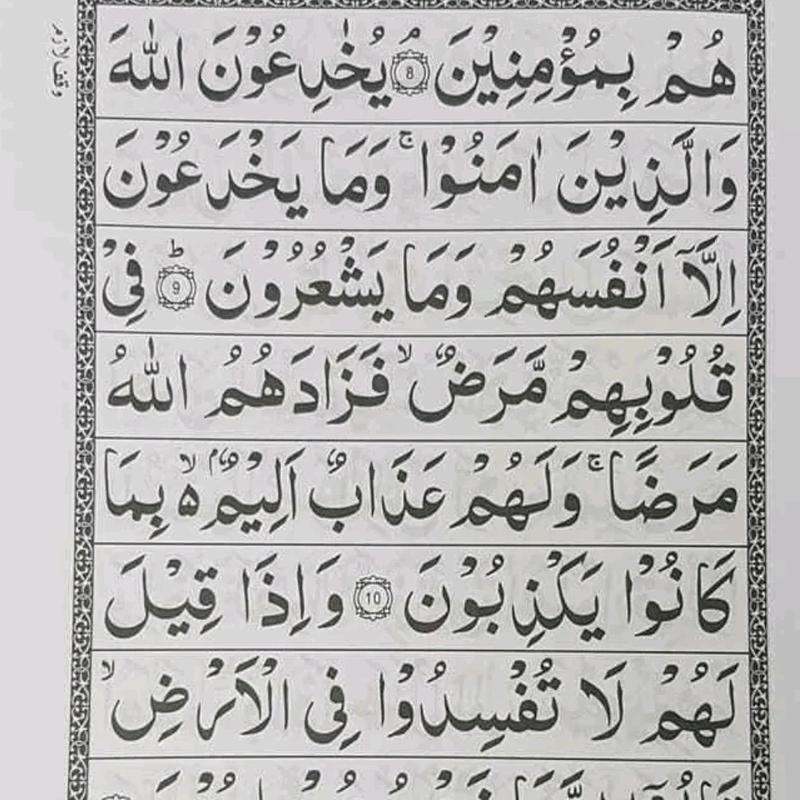 وقف لازم
هُمْ بِمُؤْمِنِيْنَ ۘ 8 يُخٰدِعُوْنَ اللّٰهَ
وَالَّذِيْنَ اٰمَنُوْا ۚ وَمَا يَخْدَعُوْنَ
اِلَّاۤ اَنْفُسَهُمْ وَمَا يَشْعُرُوْنَ ؕ 9 فِىْ
قُلُوْبِهِمْ مَّرَضٌ ۙ فَزَادَهُمُ اللّٰهُ
مَرَضًا ۚ وَلَهُمْ عَذَابٌ اَلِيْمٌۢ ۙ۬ بِمَا
كَانُوْا يَكْذِبُوْنَ 10 وَاِذَا قِيْلَ
لَهُمْ لَا تُفْسِدُوْا فِى الْاَرْضِ ۙ